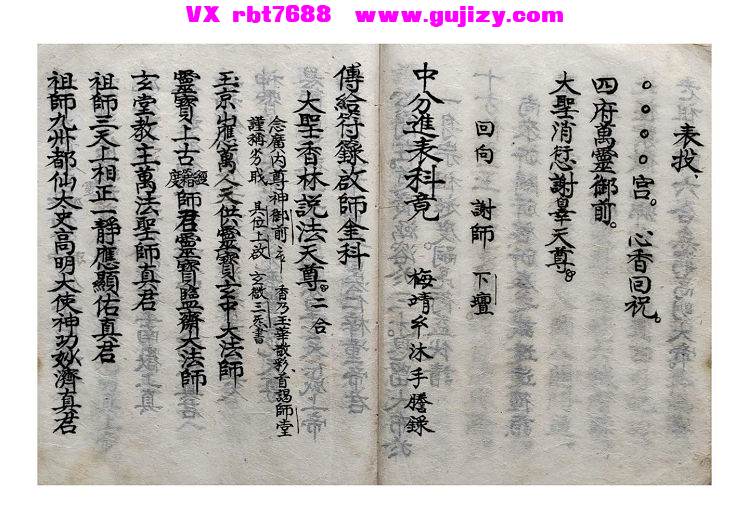 VX rbt7688 www.gujizy.com
表投、
。。。。宫。心香回祝。
四府萬靈御前。
大聖消愆謝辠天尊。
回向 謝師 下壇
中分進表科竟。 梅晴氏沐手謄錄
傳給符籙啟師全科
大聖香林説法天尊。二合
念廣内尊神御前 香乃玉華散彩首謁師堂
謹稱 職 具位上啟 玄徽三炁書
玉京山應萬人天供靈寶玄中大法師
靈寶上古經籍度師君靈寶監齋大法師
玄堂教主萬法聖師真君
祖師三天上相正一靜應顯佑真君
祖師九州都仙太史高明大使神功妙濟真君